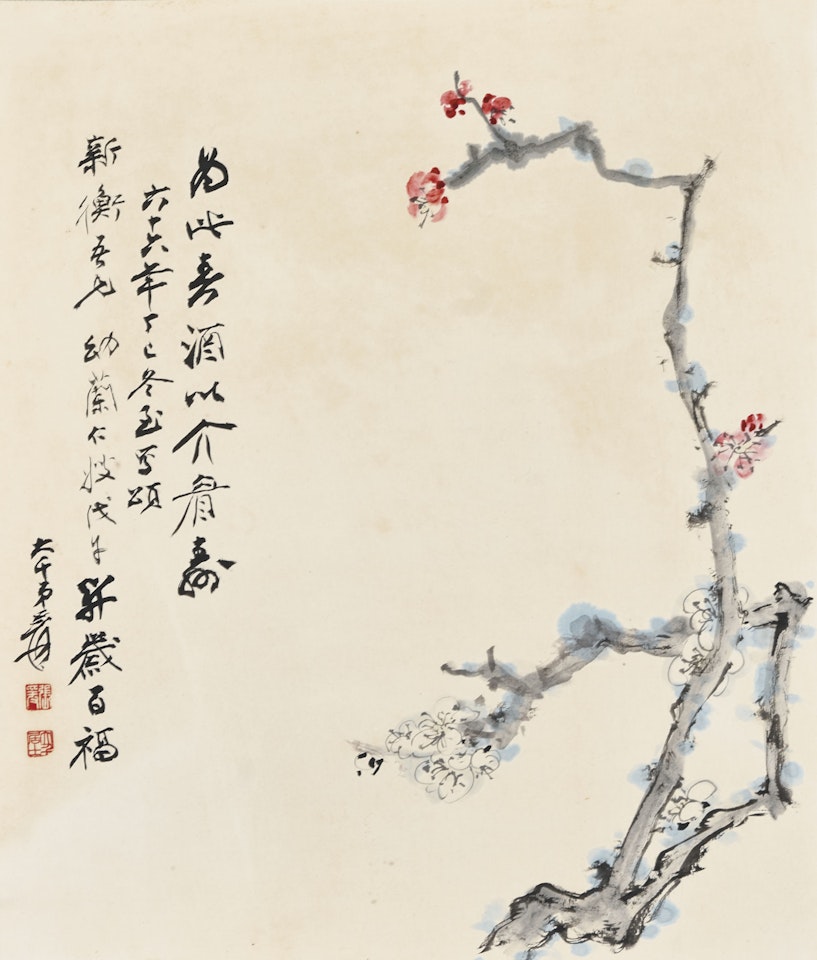 為此春酒以介眉壽
六十六年丁巳冬至寫頌
新衡吾兄 幼蘭仁嫂戊午歲百福
大千弟爰